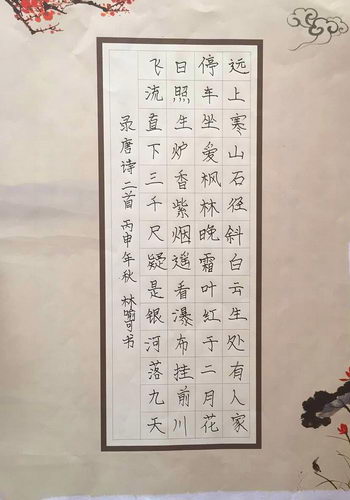 远上寒山石径斜白云生处有人家
停车坐爱枫林晚霜叶红于二月花
日照生炉香紫烟遥看瀑布挂前川
飞流直下三千尺疑是银河落九天
录唐诗二首 丙申年秋 林喻可书